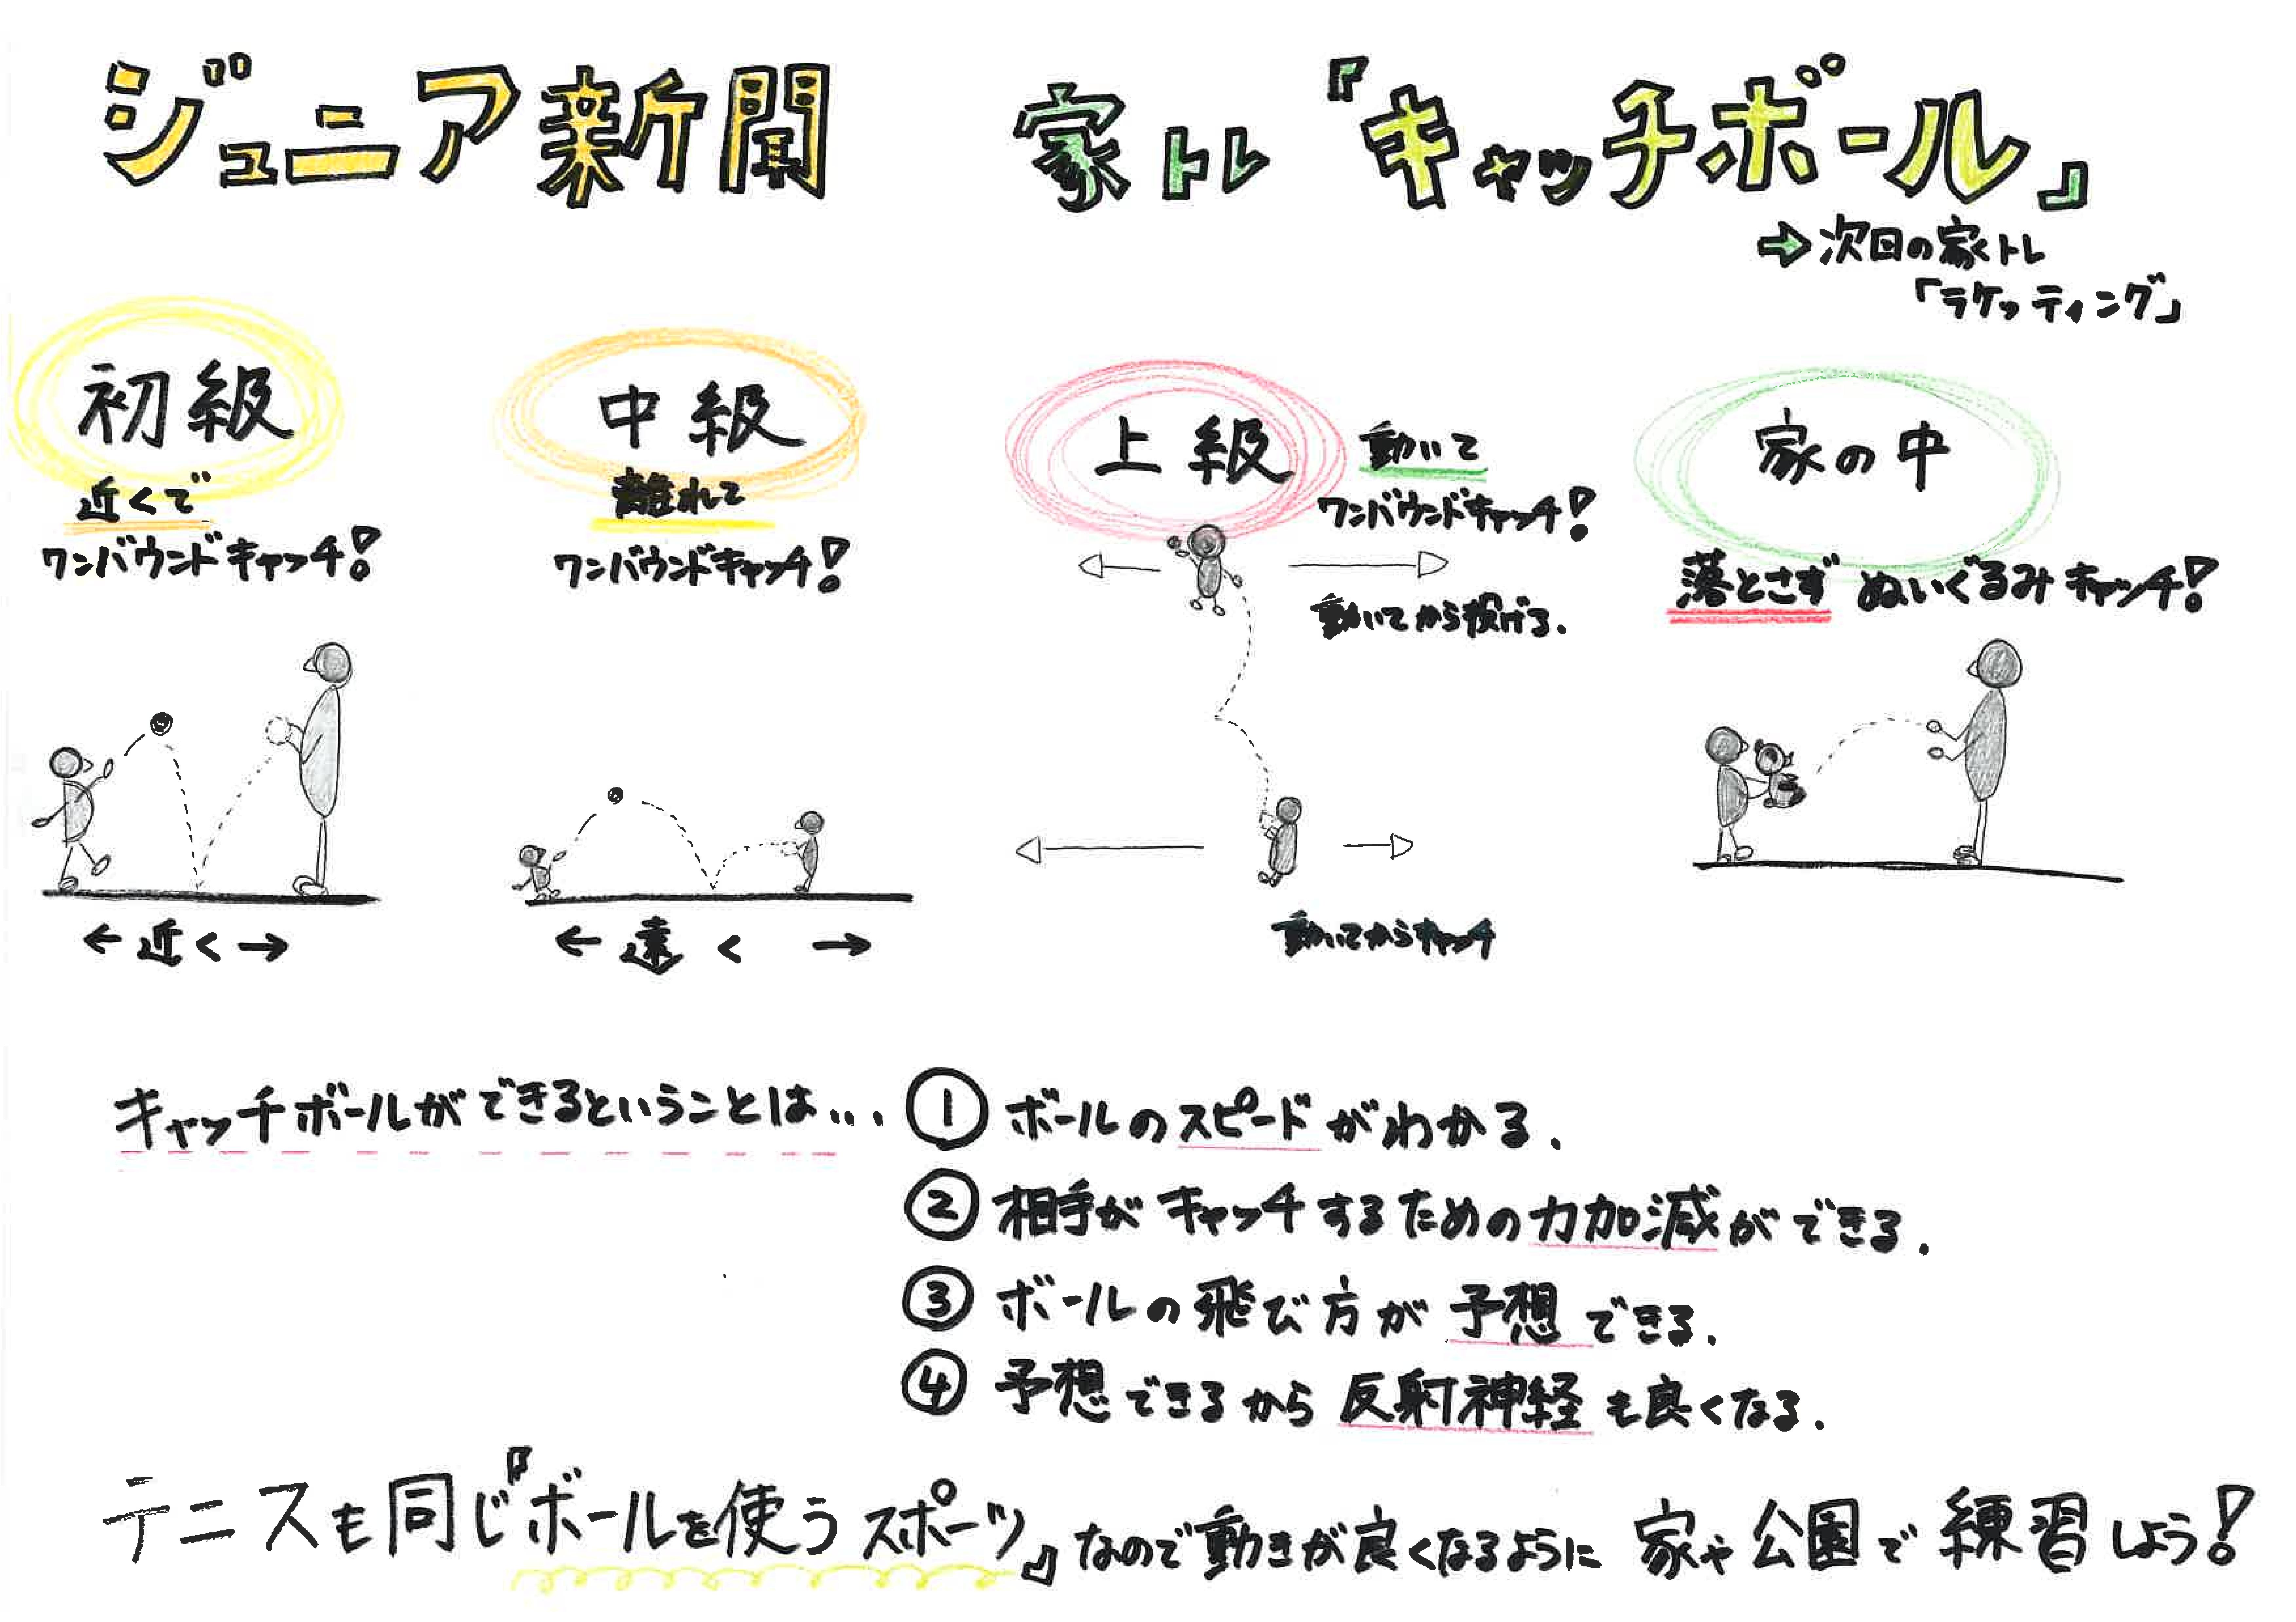 ジュニア新聞
家トレ『キャッチボール』
→次回の家トレ
「ラケッティング」
初級
近くで
ワンバウンドキャッチ!
←近く→
中級
離れて
ワンバウンドキャッチ!
←遠く→
上級
動いて
ワンバウンドキャッチ!
動いてから投げる.
動いてからキャッチ
家の中
落とさずぬいぐるみキャッチ!
キャッチボールができるということは...
①ボールのスピードがわかる.
②相手がキャッチするための力加減ができる.
③ボールの飛び方が予想できる.
④予想できるから反射神経も良くなる.
テニスも同じ『ボールを使うスポーツ』なので動きが良くなるように家や公園で練習しよう!